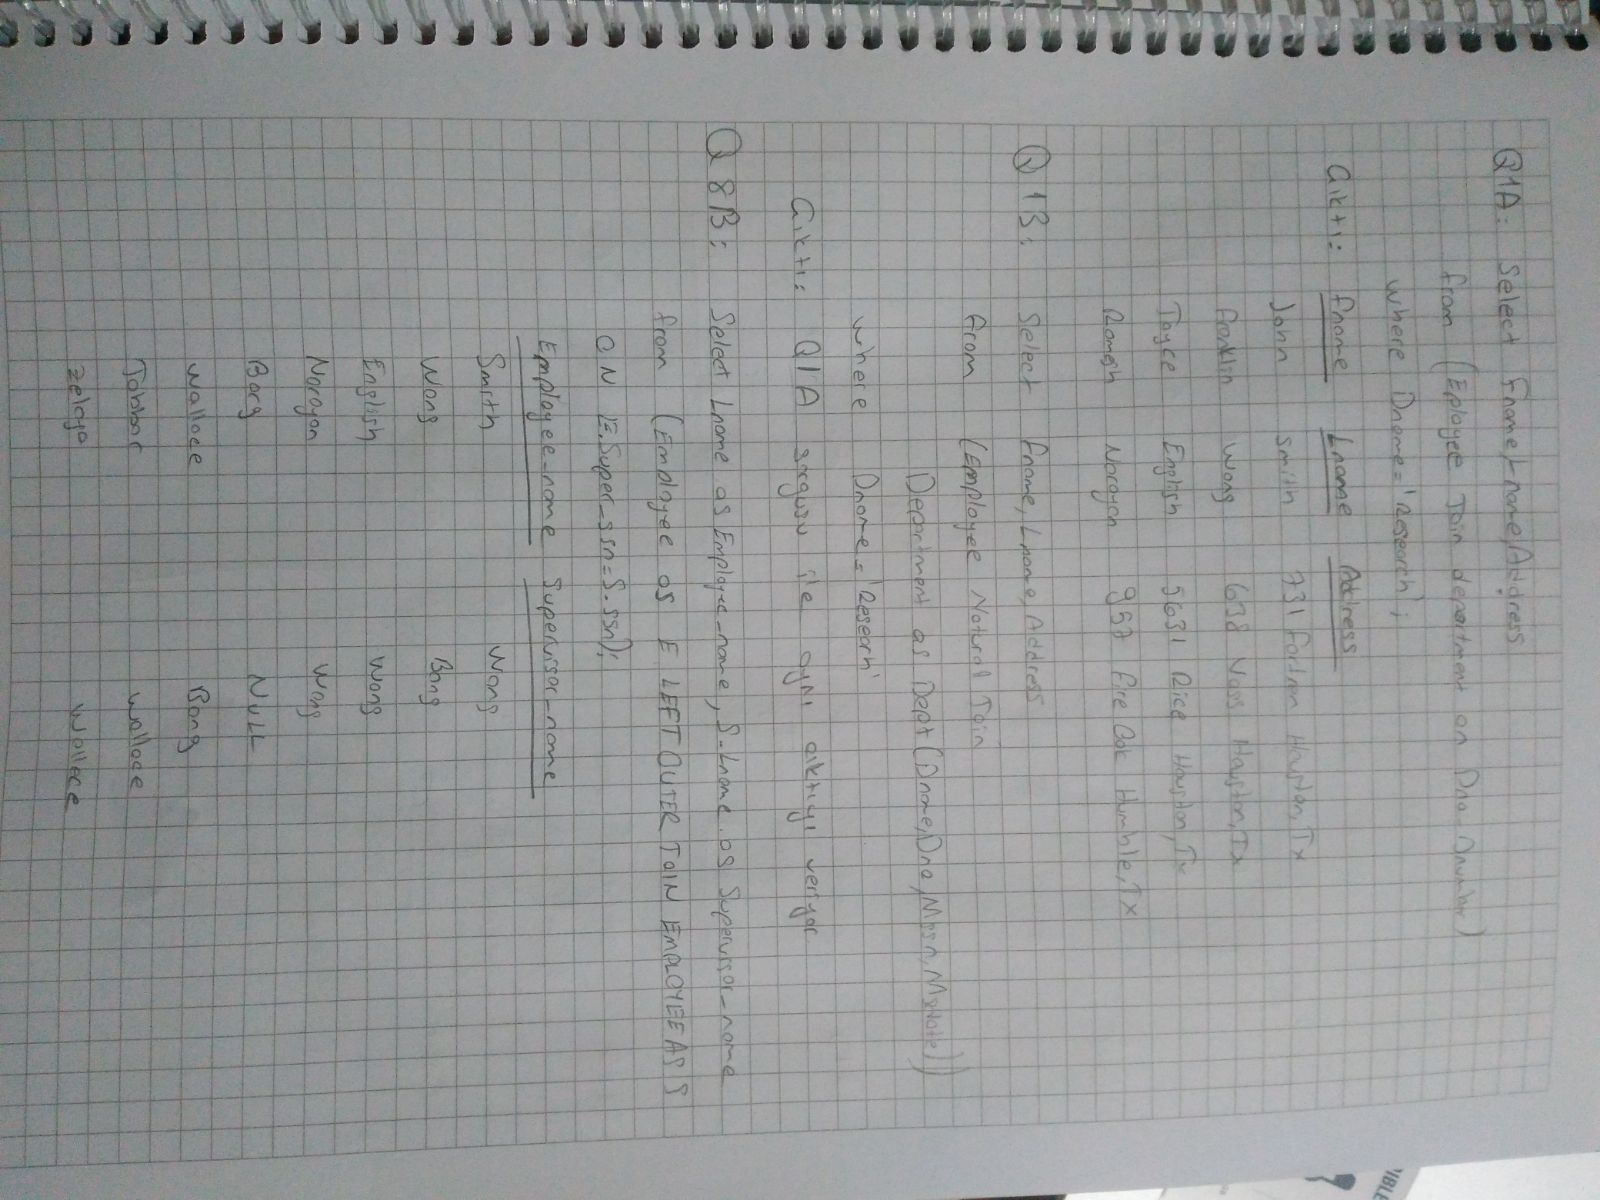 Q1A: Select Fname,Lname,Address
from (Eployee Join department on Dno Dnumber)
where Dname='Research';
Çıktı: Fname Lname Address
John Smith 731 Fodren Houston,Tx
Franklin Wong 638 Voss Houston,Tx
Joyce English 5631 Rice Houston,Tx
Ramesh Narayan 957 Fire Oak Humble,Tx
Q1B: Select Fname, Lname, Address
from (Employee Natural Join
Department as Dept (Dname,Dno,Mssn,Msdate))
where Dname='Research'
Çıktı: Q1A sorgusu ile aynı çıktıyı veriyor
Q8B: Select Lname as Employee_name, S.Lname as Supervisor_name
from (Employee as E LEFT OUTER JOIN EMPLOYEE AS S
ON E.Super_ssn=S.ssn);
Employee_name Supervisor_name
Smith Wong
Wong Borg
English Wong
Narayan Wong
Borg NULL
Wallace Borg
Jabbar Wallace
Zelaya Wallece
VIBLE